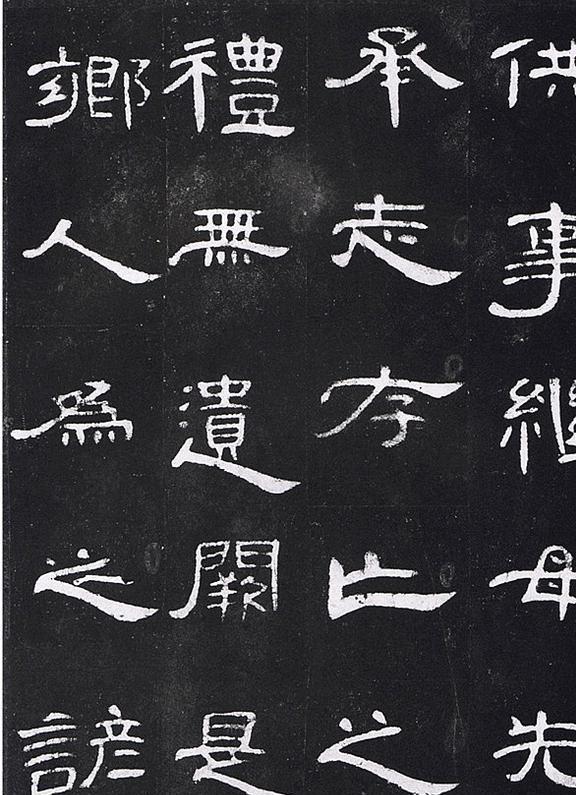 供事繼母先
承志存亡之
禮無遺闕是
鄉人爲之諺